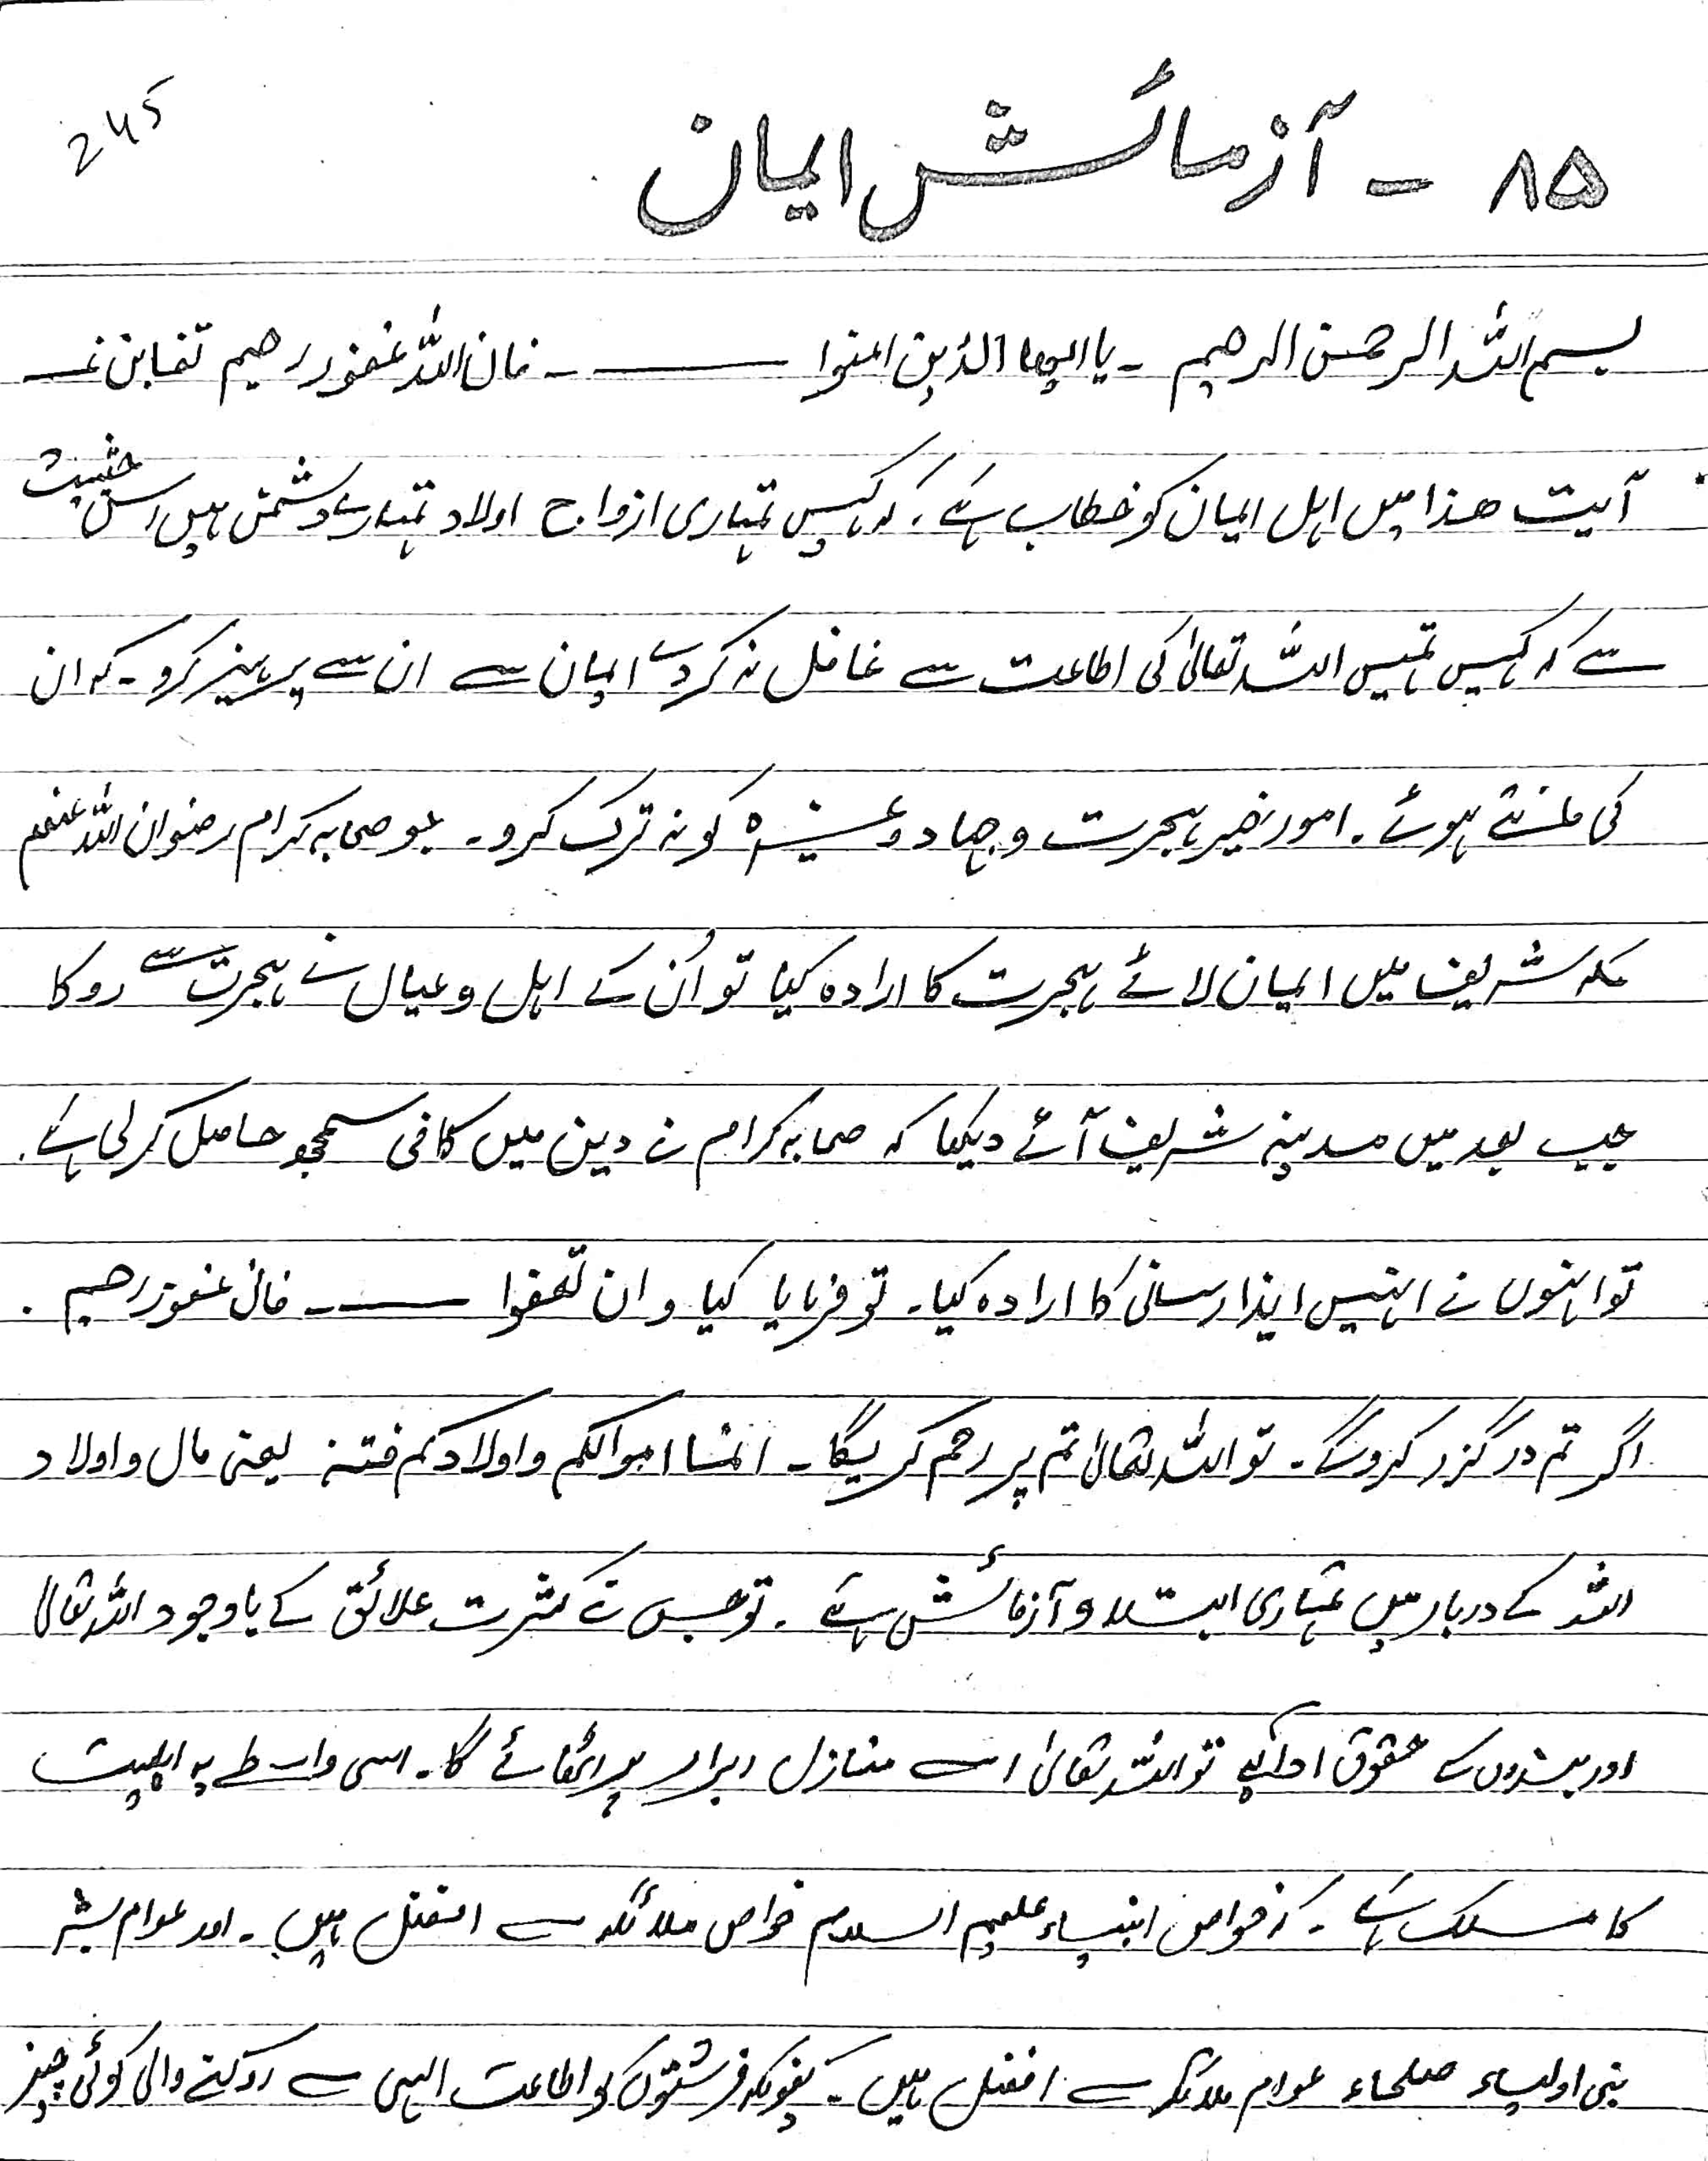 245
۸۵ - آزمائش ایمان
بسم اللہ الرحمن الرحیم - یا ایھا الذین امنوا ــــــ - فان اللہ غفور رحیم تغابن
آیت ھذا میں اہل ایمان کو خطاب ہے، کہ کہیں تمہاری ازواج اولاد تمہارے دشمن ہیں اس حیثیت
سے کہ کہیں تمہیں اللہ تعالیٰ کی اطاعت سے غافل نہ کر دے ایمان سے ان سے پرہیز کرو - کہ ان
کی مانتے ہوئے - امور خیر ہجرت و جہاد وغیرہ کو نہ ترک کرو - جو صحابہ کرام رضوان اللہ عنھم
مکہ شریف میں ایمان لائے ہجرت کا ارادہ کیا تو اُن کے اہل و عیال نے ہجرت سے روکا
جب بعد میں مدینہ شریف آئے دیکھا کہ صحابہ کرام نے دین میں کافی سمجھ حاصل کر لی ہے.
تو انہوں نے انہیں ایذا رسانی کا ارادہ کیا - تو فرمایا گیا و ان تعفوا ــــــ - فان غفور رحیم .
اگر تم درگزر کرو گے - تو اللہ تعالیٰ تم پر رحم کریگا - انما اموالکم و اولادکم فتنہ یعنی مال و اولاد
اللہ کے دربار میں تمہاری ابتلا و آزمائش ہے - تو جس نے کثرت علائق کے باوجود اللہ تعالیٰ
اور بندوں کے حقوق ادا کیے تو اللہ تعالیٰ اسے منازل ابرار پر اٹھائے گا - اسی واسطے یہ اہلبیت
کا مسلک ہے - کہ خواص انبیاء علیہم السلام خواص ملائکہ سے افضل ہیں - اور عوام بشر
بنی اولیاء صلحاء عوام ملائکہ سے افضل ہیں - کیونکہ فرشتوں کو اطاعت الہی سے روکنے والی کوئی چیز